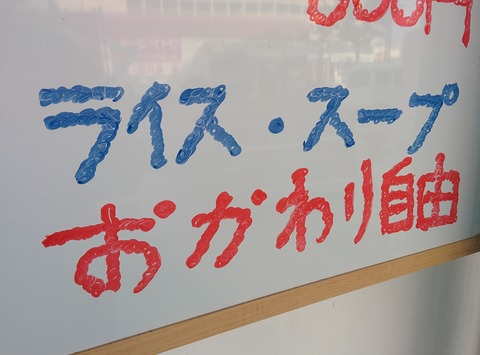 円
ライス・スープ
おかわり自由